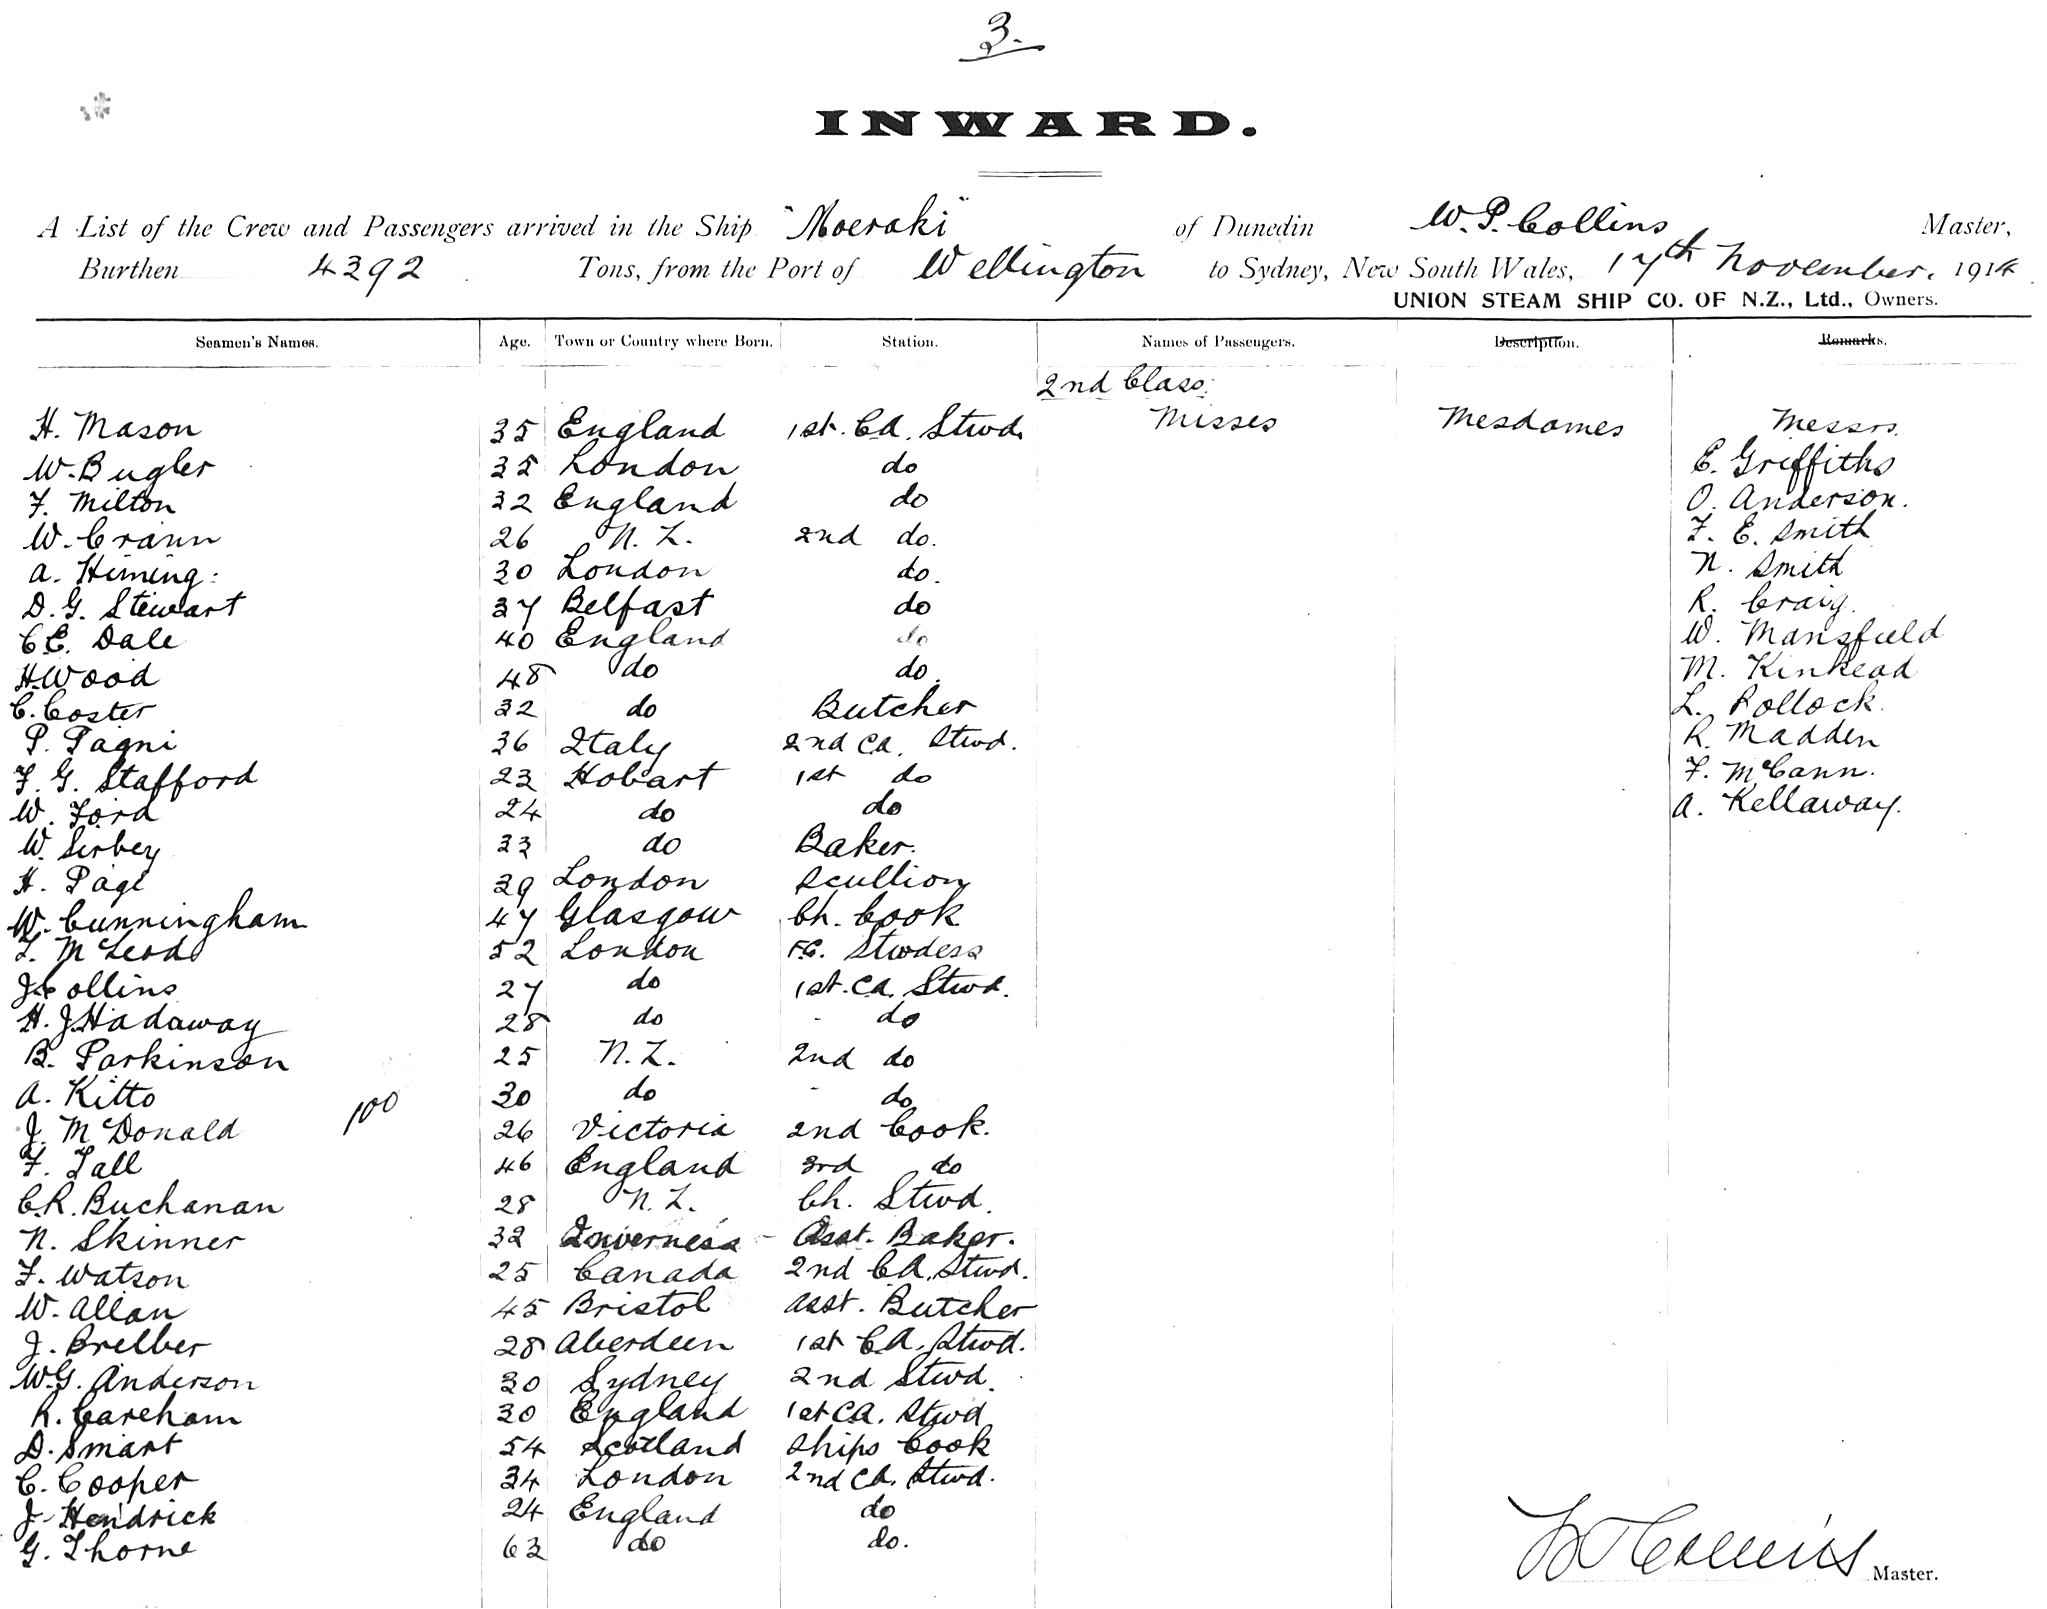 3.
INWARD.
A List of the Crew and Passengers arrived in the Ship "Moeraki" of Dunedin W. P. Collins Master,
Burthen 4392 Tons, from the Port of Wellington to Sydney, New South Wales, 17th November. 1914
UNION STEAM SHIP CO. OF N.Z., Ltd., Owners.
Seamen's Names. Age. Town or Country where Born. Station. Names of Passengers. Description. Remarks.
2nd Class.
H. Mason 35 England 1st. Ca. Stwd. Misses Mesdames Messrs.
W. Bugler 35 London do E. Griffiths
F. Milton 32 England do O. Anderson.
W. Crann 26 N. Z. 2nd do. F. E. Smith
A. Himing: 30 London do. N. Smith
D. G. Stewart 37 Belfast do R. Craig.
C.E. Dale 40 England do W. Mansfield
H. Wood 48 do do. M. Kinkead
C. Coster 32 do Butcher L. Pollock.
P. Pagni 36 Italy 2nd Ca. Stwd. R. Madden
F. G. Stafford 23 Hobart 1st do F. McCann.
W. Ford 24 do do A. Kellaway.
W. Sirbey 33 do Baker.
H. Page 39 London Scullion
W. Cunningham 47 Glasgow Ch. Cook
L. McLeod 52 London F.C. Stwdess
J Collins 27 do 1st. Ca. Stwd.
H. J. Hadaway 28 do - do
B. Parkinson 25 N. Z. 2nd do
A. Kitto 30 do - do
100
J. McDonald 26 Victoria 2nd Cook.
F. Tall 46 England 3rd do
C.R. Buchanan 28 N. Z. Ch. Stwd.
N. Skinner 32 Inverness - Asst. Baker.
F. Watson 25 Canada 2nd Ca. Stwd.
W. Allan 45 Bristol Asst. Butcher
J. Brelber 28 Aberdeen 1st Ca. Stwd.
W.G. Anderson 30 Sydney 2nd Stwd.
R. Careham 30 England 1st Ca. Stwd
D. Smart 54 Scotland Ships Cook
C. Cooper 34 London 2nd Ca. Stwd.
J. Hendrick 24 England do
G. Thorne 63 do do.
W P Collins Master.